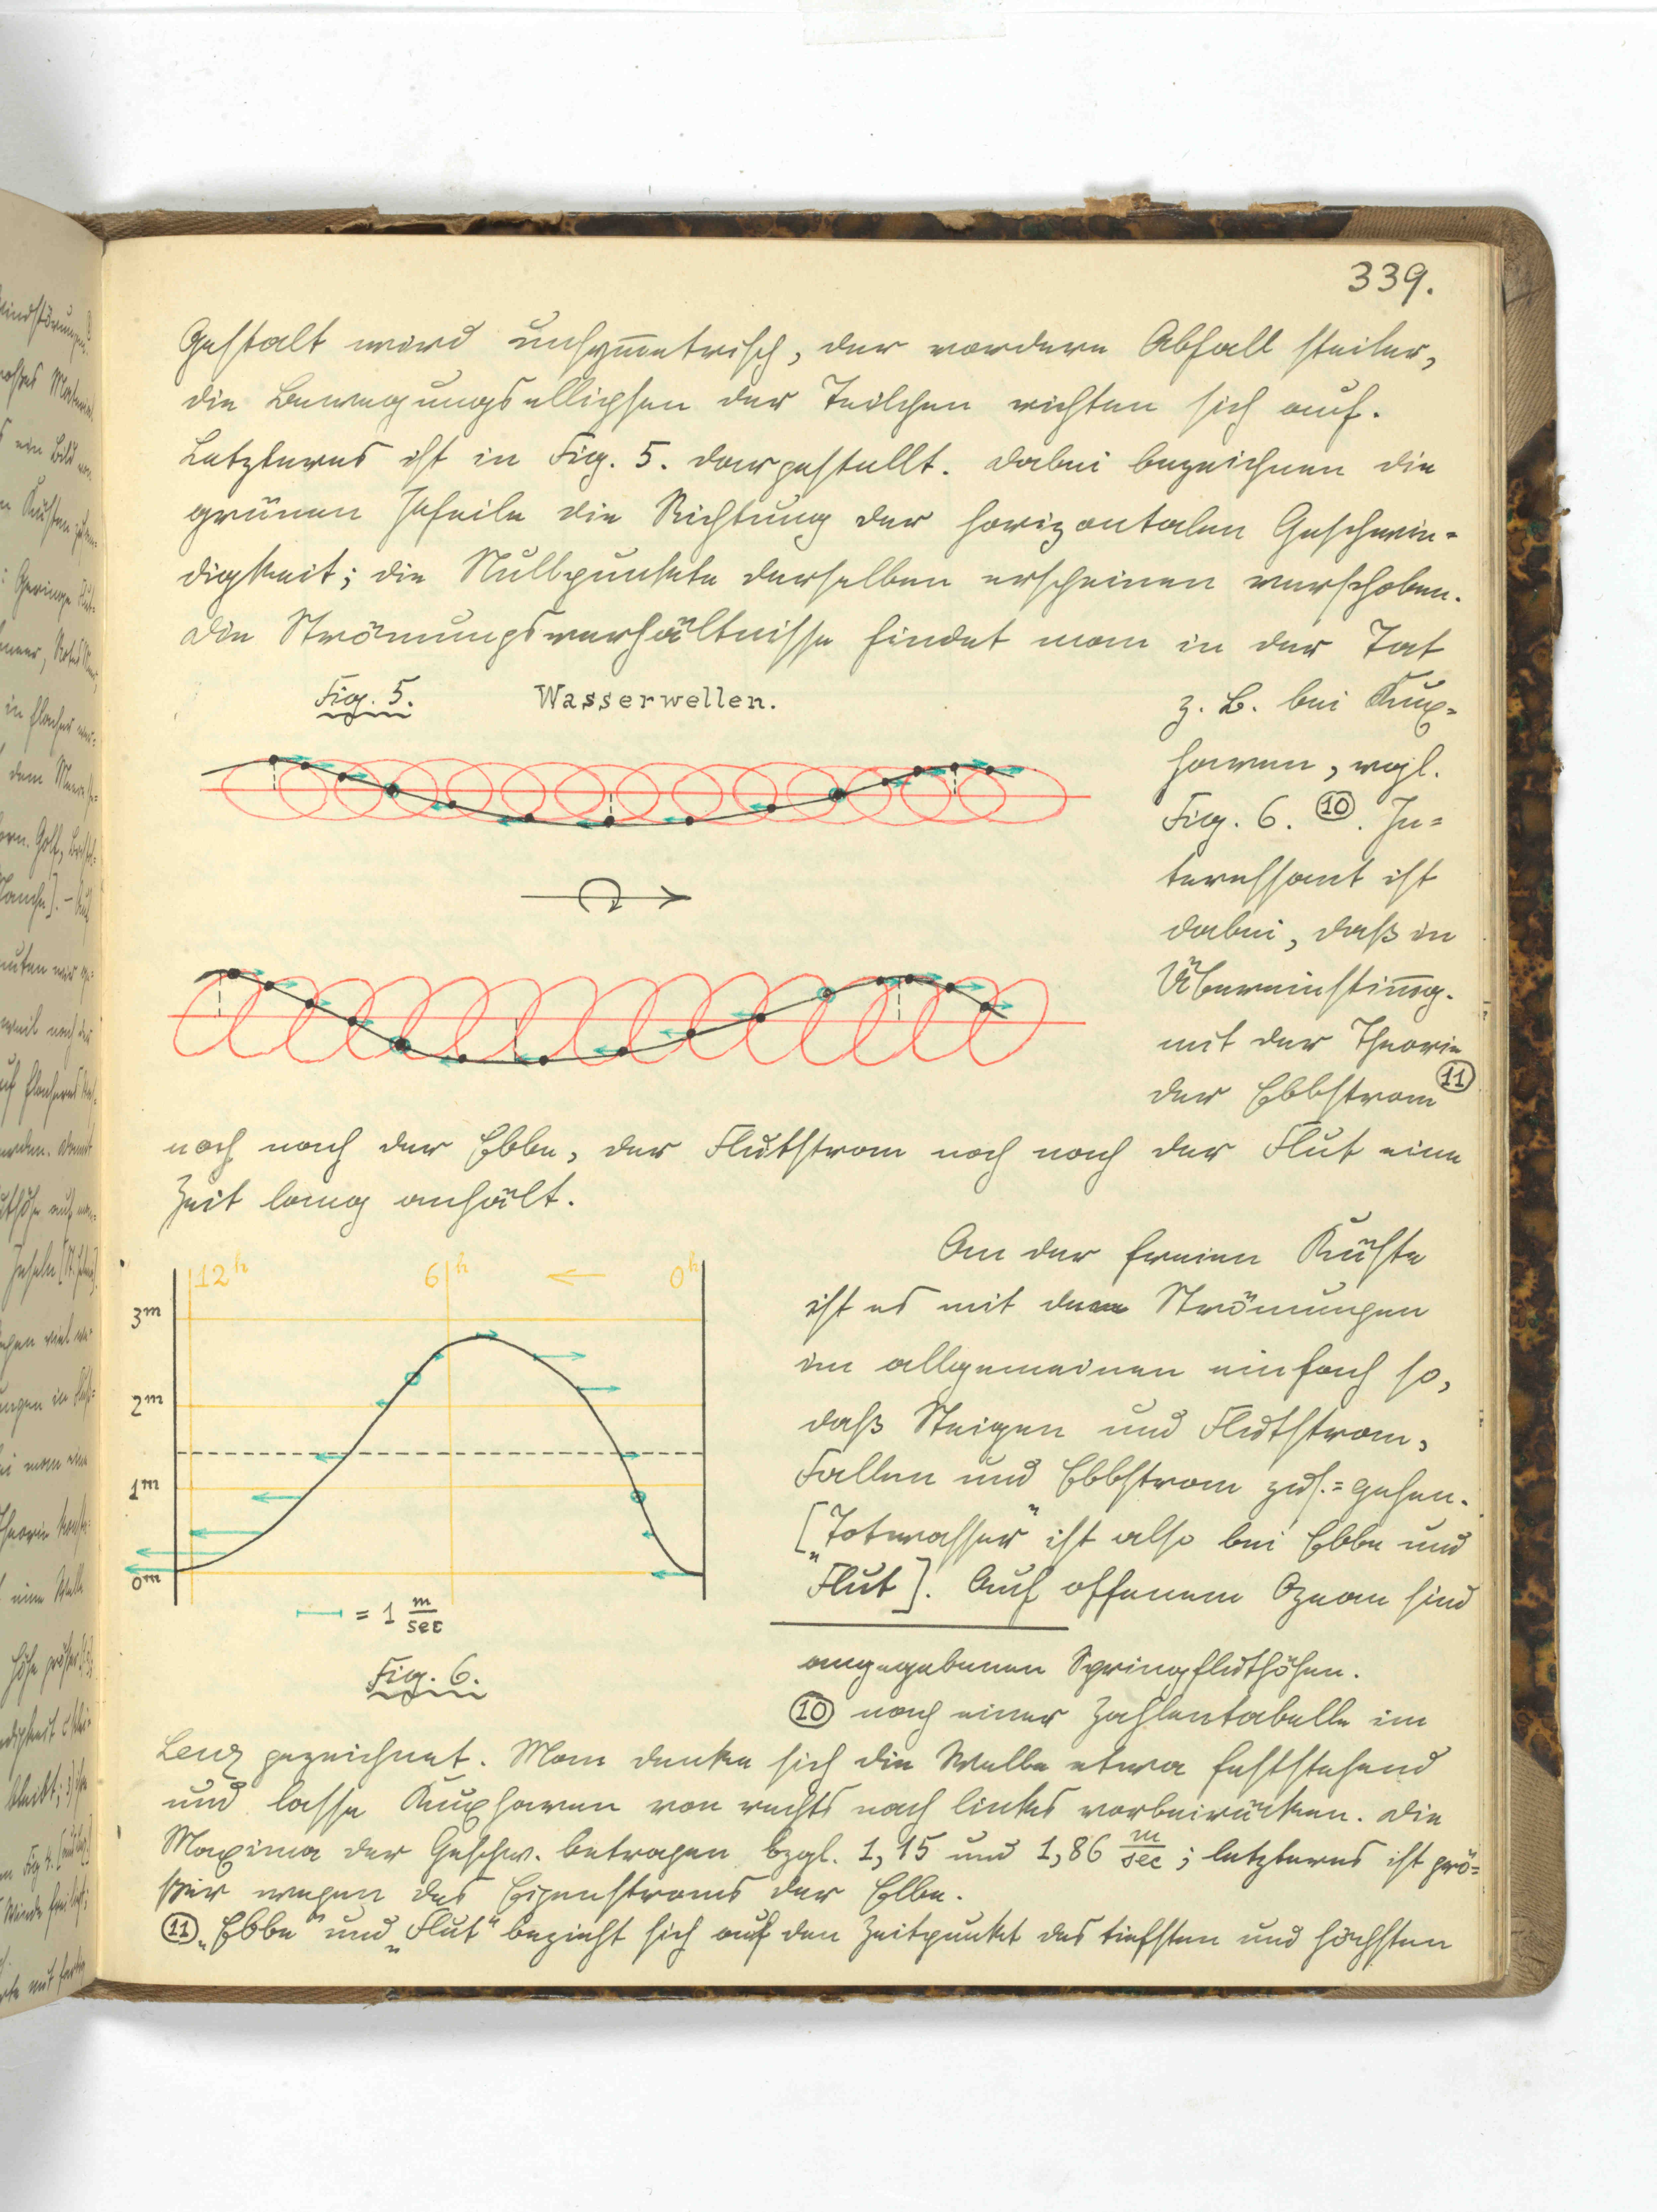 339.
Gestalt wird unsym̅etrisch, der vordere Abfall steiler,
die Bewegungsellipsen der Teilchen richten sich auf.
Letzteres ist in Fig. 5. dargestellt. Dabei bezeichnen die
grünen Pfeile die Richtung der horizontalen Geschwin=
digkeit; die Nullpunkte derselben erscheinen verschoben.
Die Strömungsverhältnisse findet man in der Tat
Fig. 5. Wasserwellen.
z. B. bei Kux=
haven, vgl.
Fig. 6. ⑩. In=
teressant ist
dabei, daß in
Übereinstim̅g.
mit der Theorie
der Ebbstrom ⑪
noch nach der Ebbe, der Flutstrom noch nach der Flut eine
Zeit lang anhält.
12h 6h ← 0h
3m
2m
1m
0m
= 1 m/sec
Fig. 6.
An der freien Küste
ist es mit den Strömungen
im allgemeinen einfach so,
daß Steigen und Flutstrom,
Fallen und Ebbstrom zus.=gehen.
[„Totwasser" ist also bei Ebbe und
Flut]. Auf offenem Ozean sind
angegebenen Springfluthöhen.
⑩ nach einer Zahlentabelle im
Lenz gezeichnet. Man denke sich die Welle etwa feststehend
und lasse Kuxhaven von rechts nach links vorbeirücken. Die
Maxima der Geschw. betragen bzgl. 1,15 und 1,86 m/sec; letzteres ist grö=
ßer wegen des Eigenstroms der Elbe.
⑪ „Ebbe" und „Flut" bezieht sich auf den Zeitpunkt des tiefsten und höchsten